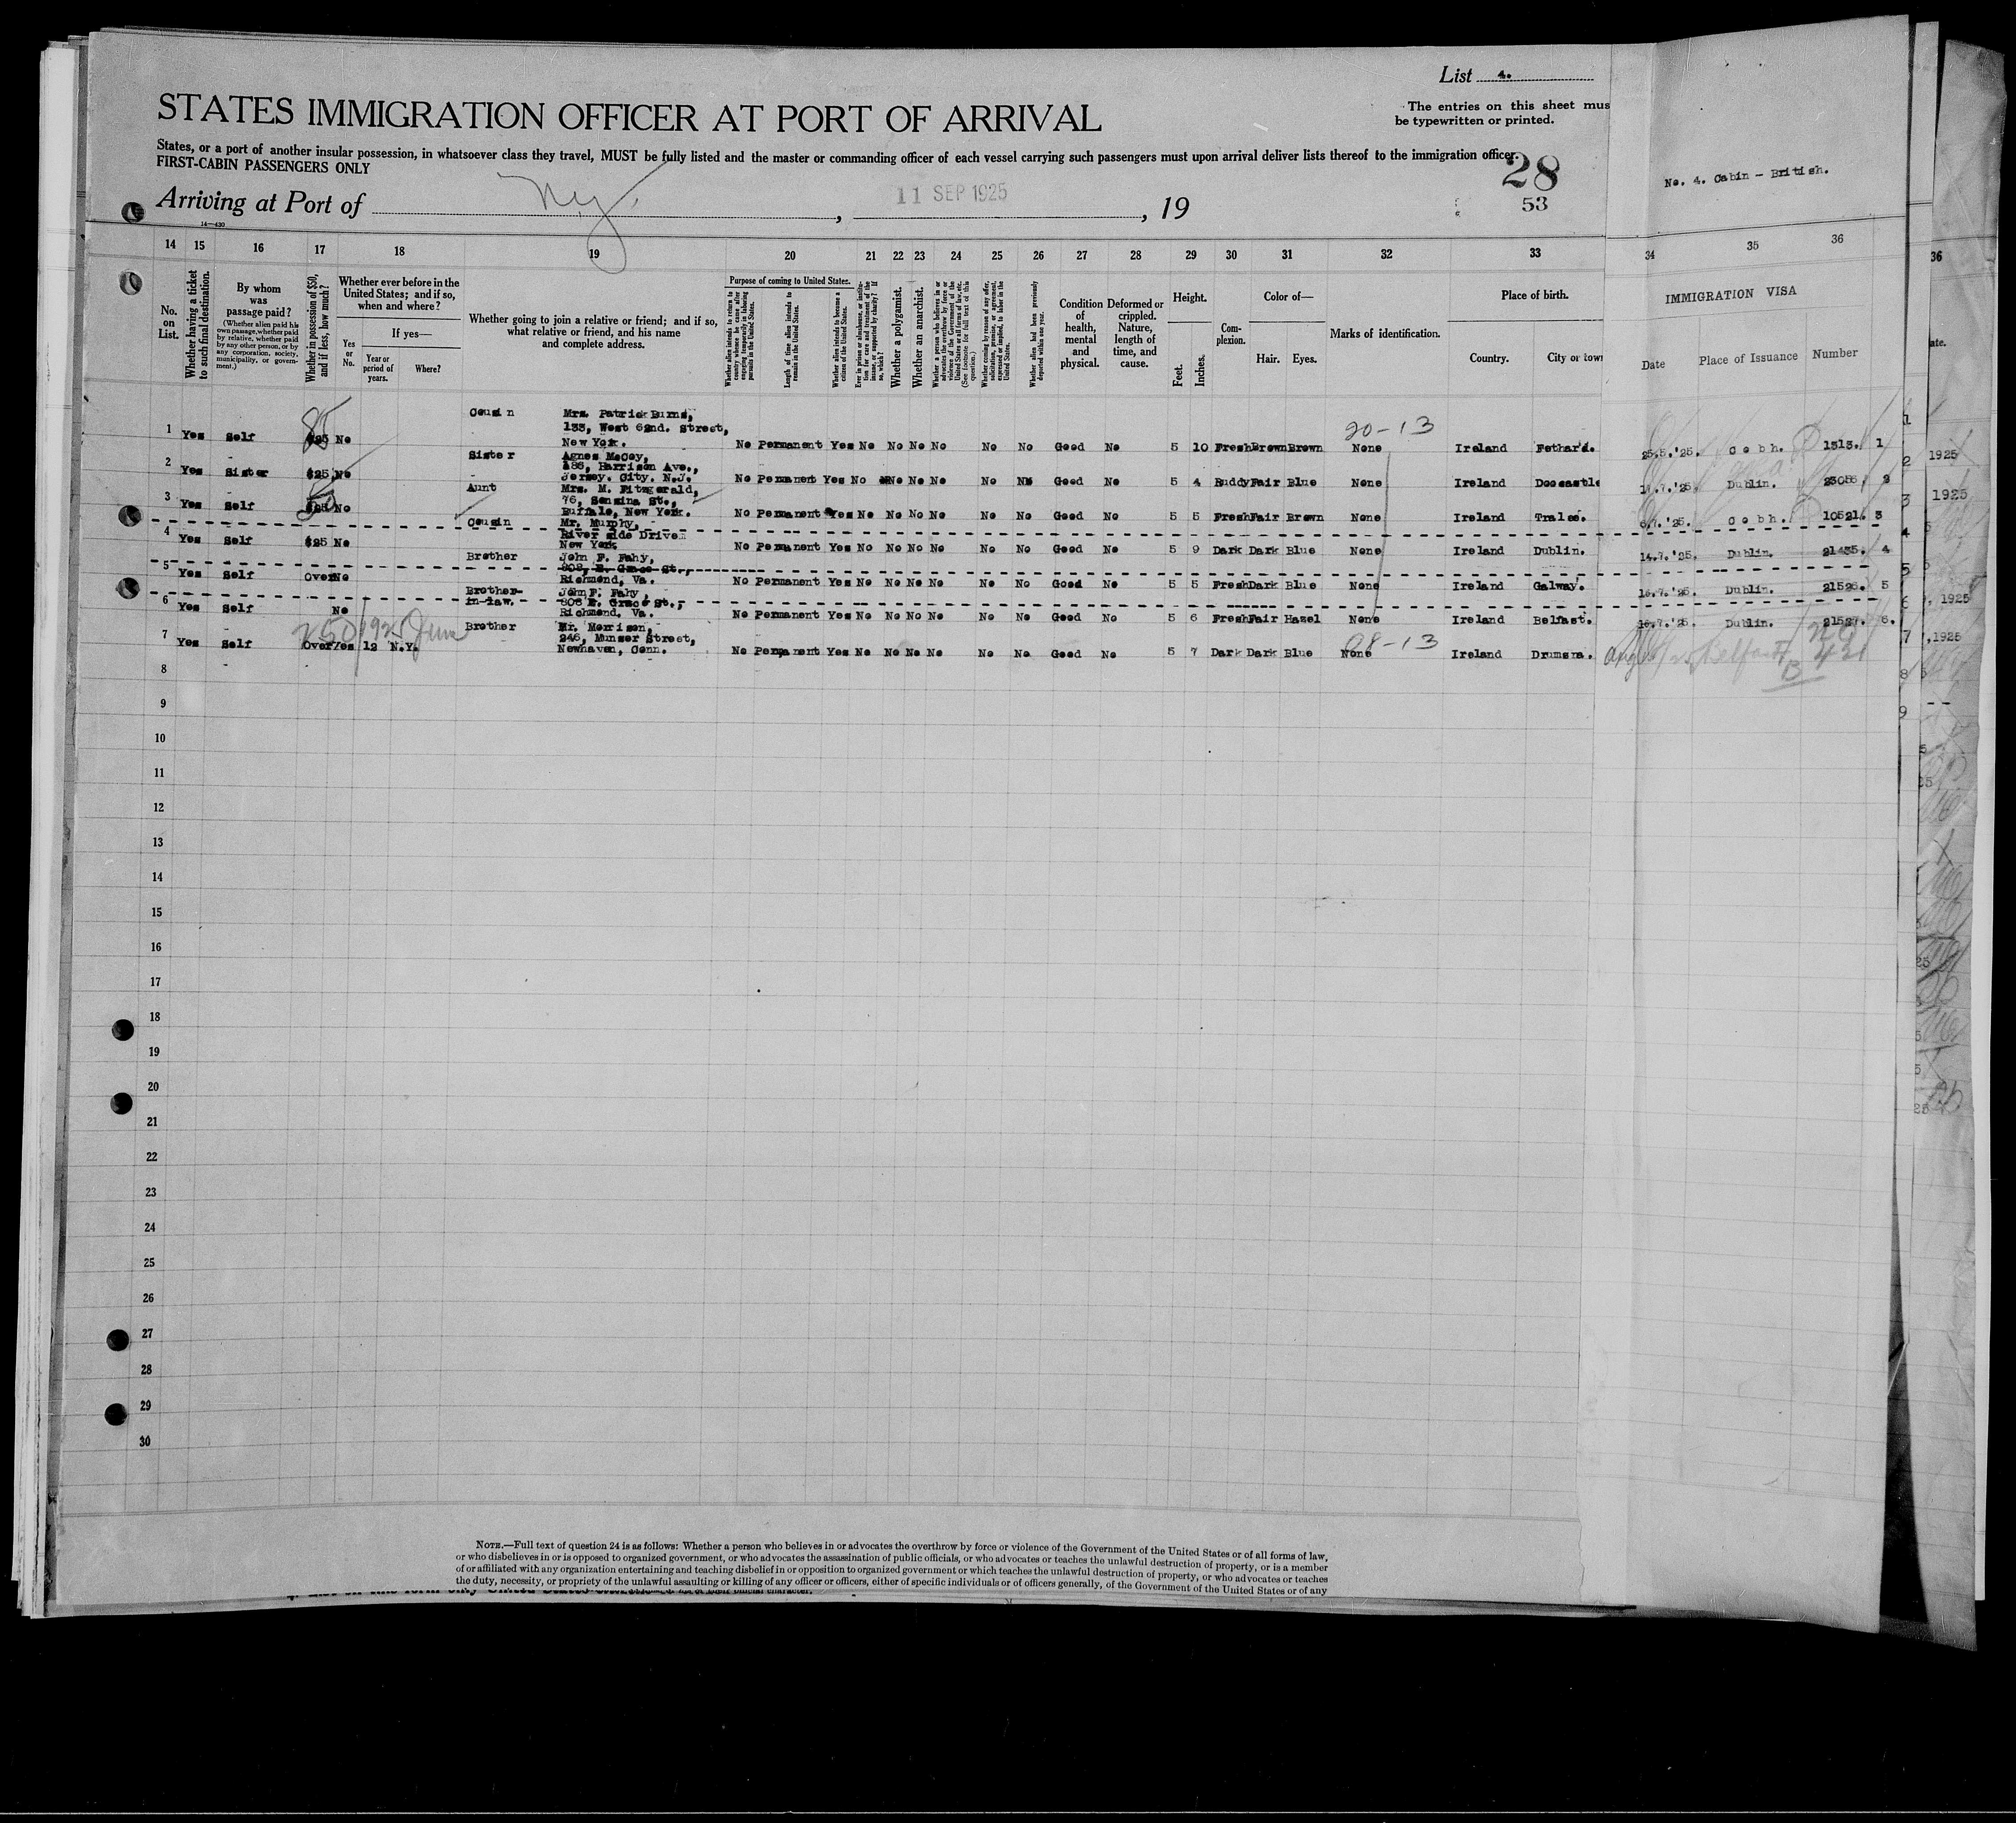 List 4.
STATES IMMIGRATION OFFICER AT PORT OF ARRIVAL
The entries on this sheet mus
be typewritten or printed.
States, or a port of another insular possession, in whatsoever class they travel, MUST be fully listed and the master or commanding officer of each vessel carrying such passengers must upon arrival deliver lists thereof to the immigration officer.
FIRST-CABIN PASSENGERS ONLY
28
53
No. 4. Cabin - British.
Arriving at Port of N.Y. , 11 SEP 1925 , 19
14—430
14 15 16 17 18 19 20 21 22 23 24 25 26 27 28 29 30 31 32 33 34 35 36
36
No. on List.
Whether having a ticket to such final destination.
By whom was passage paid?
(Whether alien paid his own passage, whether paid by relative, whether paid by any other person, or by any corporation, society, municipality, or government.)
Whether in possession of $50, and if less, how much?
Whether ever before in the United States; and if so, when and where?
If yes—
Yes or No.
Year or period of years.
Where?
Whether going to join a relative or friend; and if so, what relative or friend, and his name and complete address.
Purpose of coming to United States.
Whether alien intends to return to country whence he came after engaging temporarily in laboring pursuits in the United States.
Length of time alien intends to remain in the United States.
Whether alien intends to become a citizen of the United States.
Ever in prison or almshouse, or institution for care and treatment of the insane, or supported by charity? If so, which?
Whether a polygamist.
Whether an anarchist.
Whether a person who believes in or advocates the overthrow by force or violence of the Government of the United States or all forms of law, etc. (See footnote for full text of this question.)
Whether coming by reason of any offer, solicitation, promise, or agreement, expressed or implied, to labor in the United States.
Whether alien had been previously deported within one year.
Condition of health, mental and physical.
Deformed or crippled. Nature, length of time, and cause.
Height.
Feet.
Inches.
Complexion.
Color of—
Hair.
Eyes.
Marks of identification.
Place of birth.
Country.
City or town
IMMIGRATION VISA
Date
Place of Issuance
Number
ate.
20-13
1 Yes Self $25 No Cousin Mrs. Patrick Burns,
133, West 62nd. Street,
New York. No Permanent Yes No No No No No No Good No 5 10 Fresh Brown Brown None Ireland Fethard. 25.5.'25. Cobh. 1313. 1
2 Yes Sister $25 No Sister Agnes McCoy,
186, Harrison Ave.,
Jersey. City. N.J. No Permanent Yes No No No No No No Good No 5 4 Ruddy Fair Blue None Ireland Doocastle Dublin. 23056. 2
3 Yes Self $25 No Aunt Mrs. M. Fitzgerald,
76, St.,
Buffalo, New York. No Permanent Yes No No No No No No Good No 5 5 Fresh Fair Brown None Ireland Tralee. 6.7.'25. Cobh. 10521. 3
4 Yes Self $25 No Cousin Mr. Murphy,
River side Drive
New York No Permanent Yes No No No No No No Good No 5 9 Dark Dark Blue None Ireland Dublin. 14.7.'25. Dublin. 21435. 4
5 Yes Self Over No Brother John F. Fahy,
808, E. Grace St.,
Richmond, Va. No Permanent Yes No No No No No No Good No 5 5 Fresh Dark Blue None Ireland Galway. 16.7.'25. Dublin. 21526. 5
6 Yes Self No Brother-
in-law. John F. Fahy,
808 E. Grace St.,
Richmond, Va. No Permanent Yes No No No No No No Good No 5 6 Fresh Fair Hazel None Ireland Belfast. 16.7.'25. Dublin. 21527. 6.
250 1925 June
7 Yes Self Over Yes 12 N.Y. Brother Mr. Morrison,
246, Munser Street,
Newhaven, Conn. No Permanent Yes No No No No No No Good No 5 7 Dark Dark Blue None 08-13 Ireland Drumsna. Belfast
8
9
10
11
12
13
14
15
16
17
18
19
20
21
22
23
24
25
26
27
28
29
30
NOTE.—Full text of question 24 is as follows: Whether a person who believes in or advocates the overthrow by force or violence of the Government of the United States or of all forms of law,
or who disbelieves in or is opposed to organized government, or who advocates the assassination of public officials, or who advocates or teaches the unlawful destruction of property, or is a member
of or affiliated with any organization entertaining and teaching disbelief in or opposition to organized government or which teaches the unlawful destruction of property, or who advocates or teaches
the duty, necessity, or propriety of the unlawful assaulting or killing of any officer or officers, either of specific individuals or of officers generally, of the Government of the United States or of any